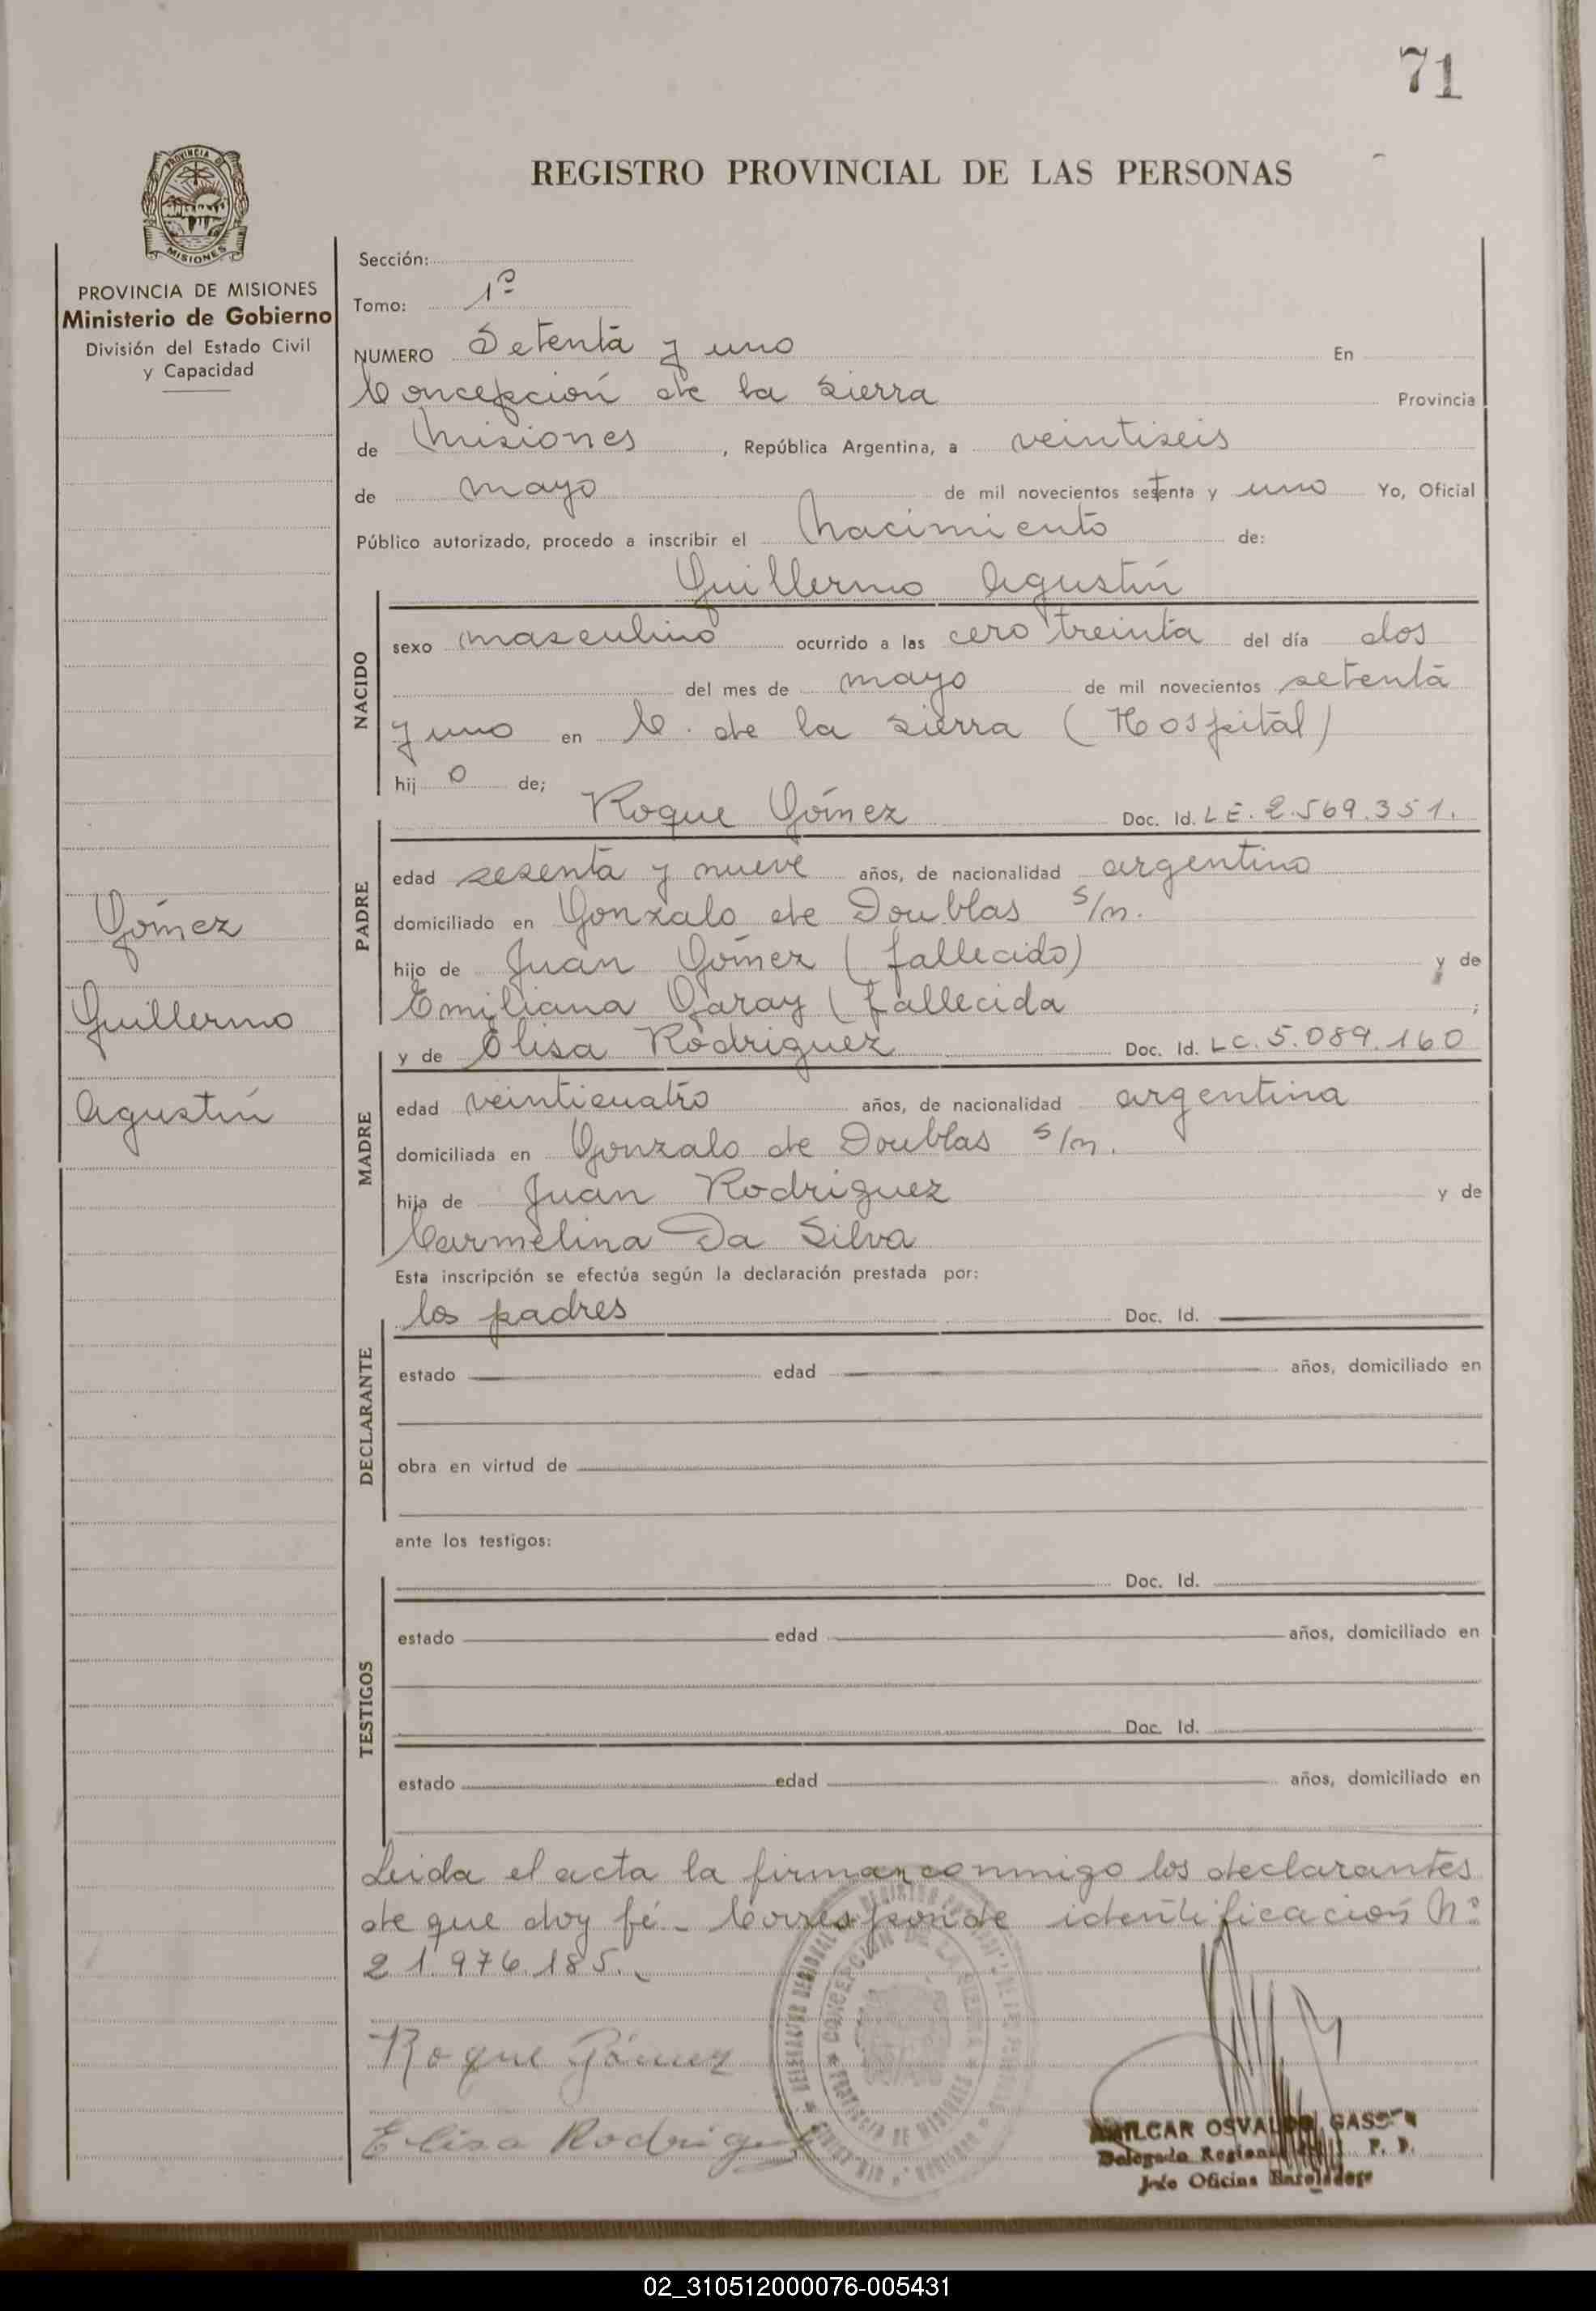 71
REGISTRO PROVINCIAL DE LAS PERSONAS
PROVINCIA DE
MISIONES
PROVINCIA DE MISIONES
Ministerio de Gobierno
División del Estado Civil
y Capacidad
Gómez
Guillermo
Agustín
Sección:
Tomo: 1º
NUMERO Setenta y uno En
Concepción de la Sierra Provincia
de Misiones, República Argentina, a veintiseis
de mayo de mil novecientos setenta y uno Yo, Oficial
Público autorizado, procedo a inscribir el Nacimiento de:
Guillermo Agustín
NACIDO
sexo masculino ocurrido a las cero treinta del día dos
del mes de mayo de mil novecientos setenta
y uno en C. de la Sierra (Hospital)
hij o de;
Roque Gómez Doc. Id. LE. 2.569.351.
PADRE
edad sesenta y nueve años, de nacionalidad argentino
domiciliado en Gonzalo de Doublas s/n.
hijo de Juan Gómez (fallecido) y de
Emiliana Garay (fallecida ;
y de Elisa Rodriguez Doc. Id. LC. 5.089.160
MADRE
edad veinticuatro años, de nacionalidad argentina
domiciliada en Gonzalo de Doublas s/n.
hija de Juan Rodriguez y de
Carmelina Da Silva
Esta inscripción se efectúa según la declaración prestada por:
los padres Doc. Id.
DECLARANTE
estado edad años, domiciliado en
obra en virtud de
ante los testigos:
Doc. Id.
TESTIGOS
estado edad años, domiciliado en
Doc. Id.
estado edad años, domiciliado en
Leida el acta la firman conmigo los declarantes
de que doy fé._ Corresponde identificación Nº
21.976.185._
CONCEPCION DE LA SIERRA
PROVINCIA DE MISIONES
Roque Gómez
Elisa Rodriguez
AMILCAR OSVALDO
Delegado Regional R. P. P.
Jefe Oficina
02_310512000076-005431